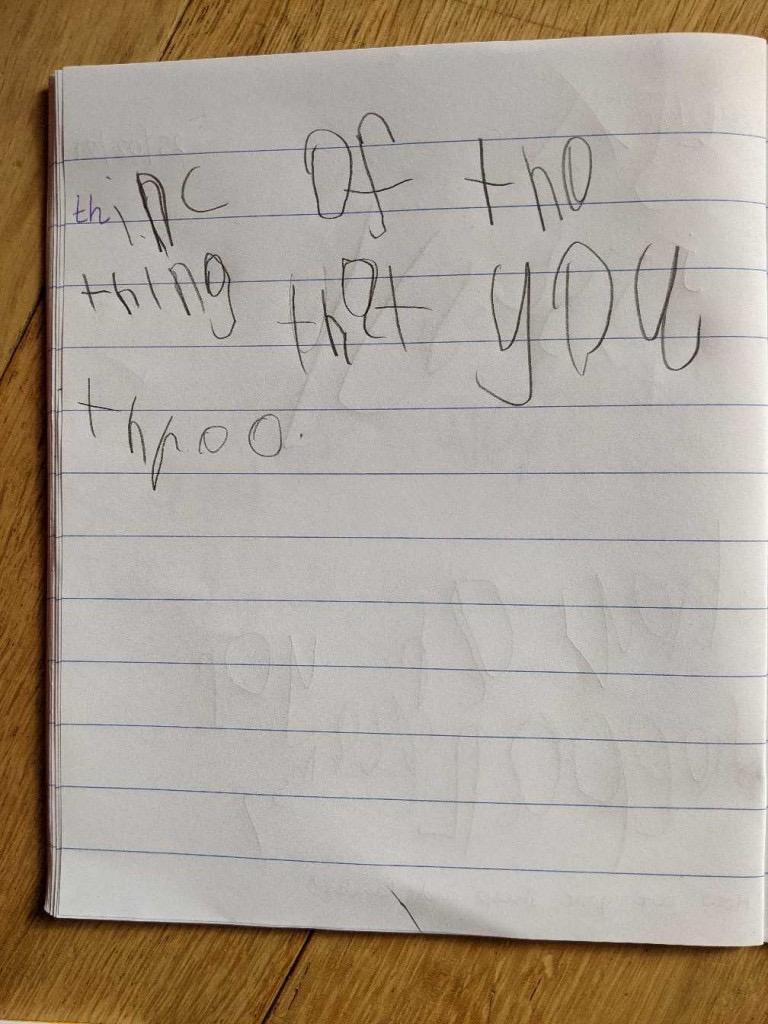 thinc Of tho
thing that you
throo.